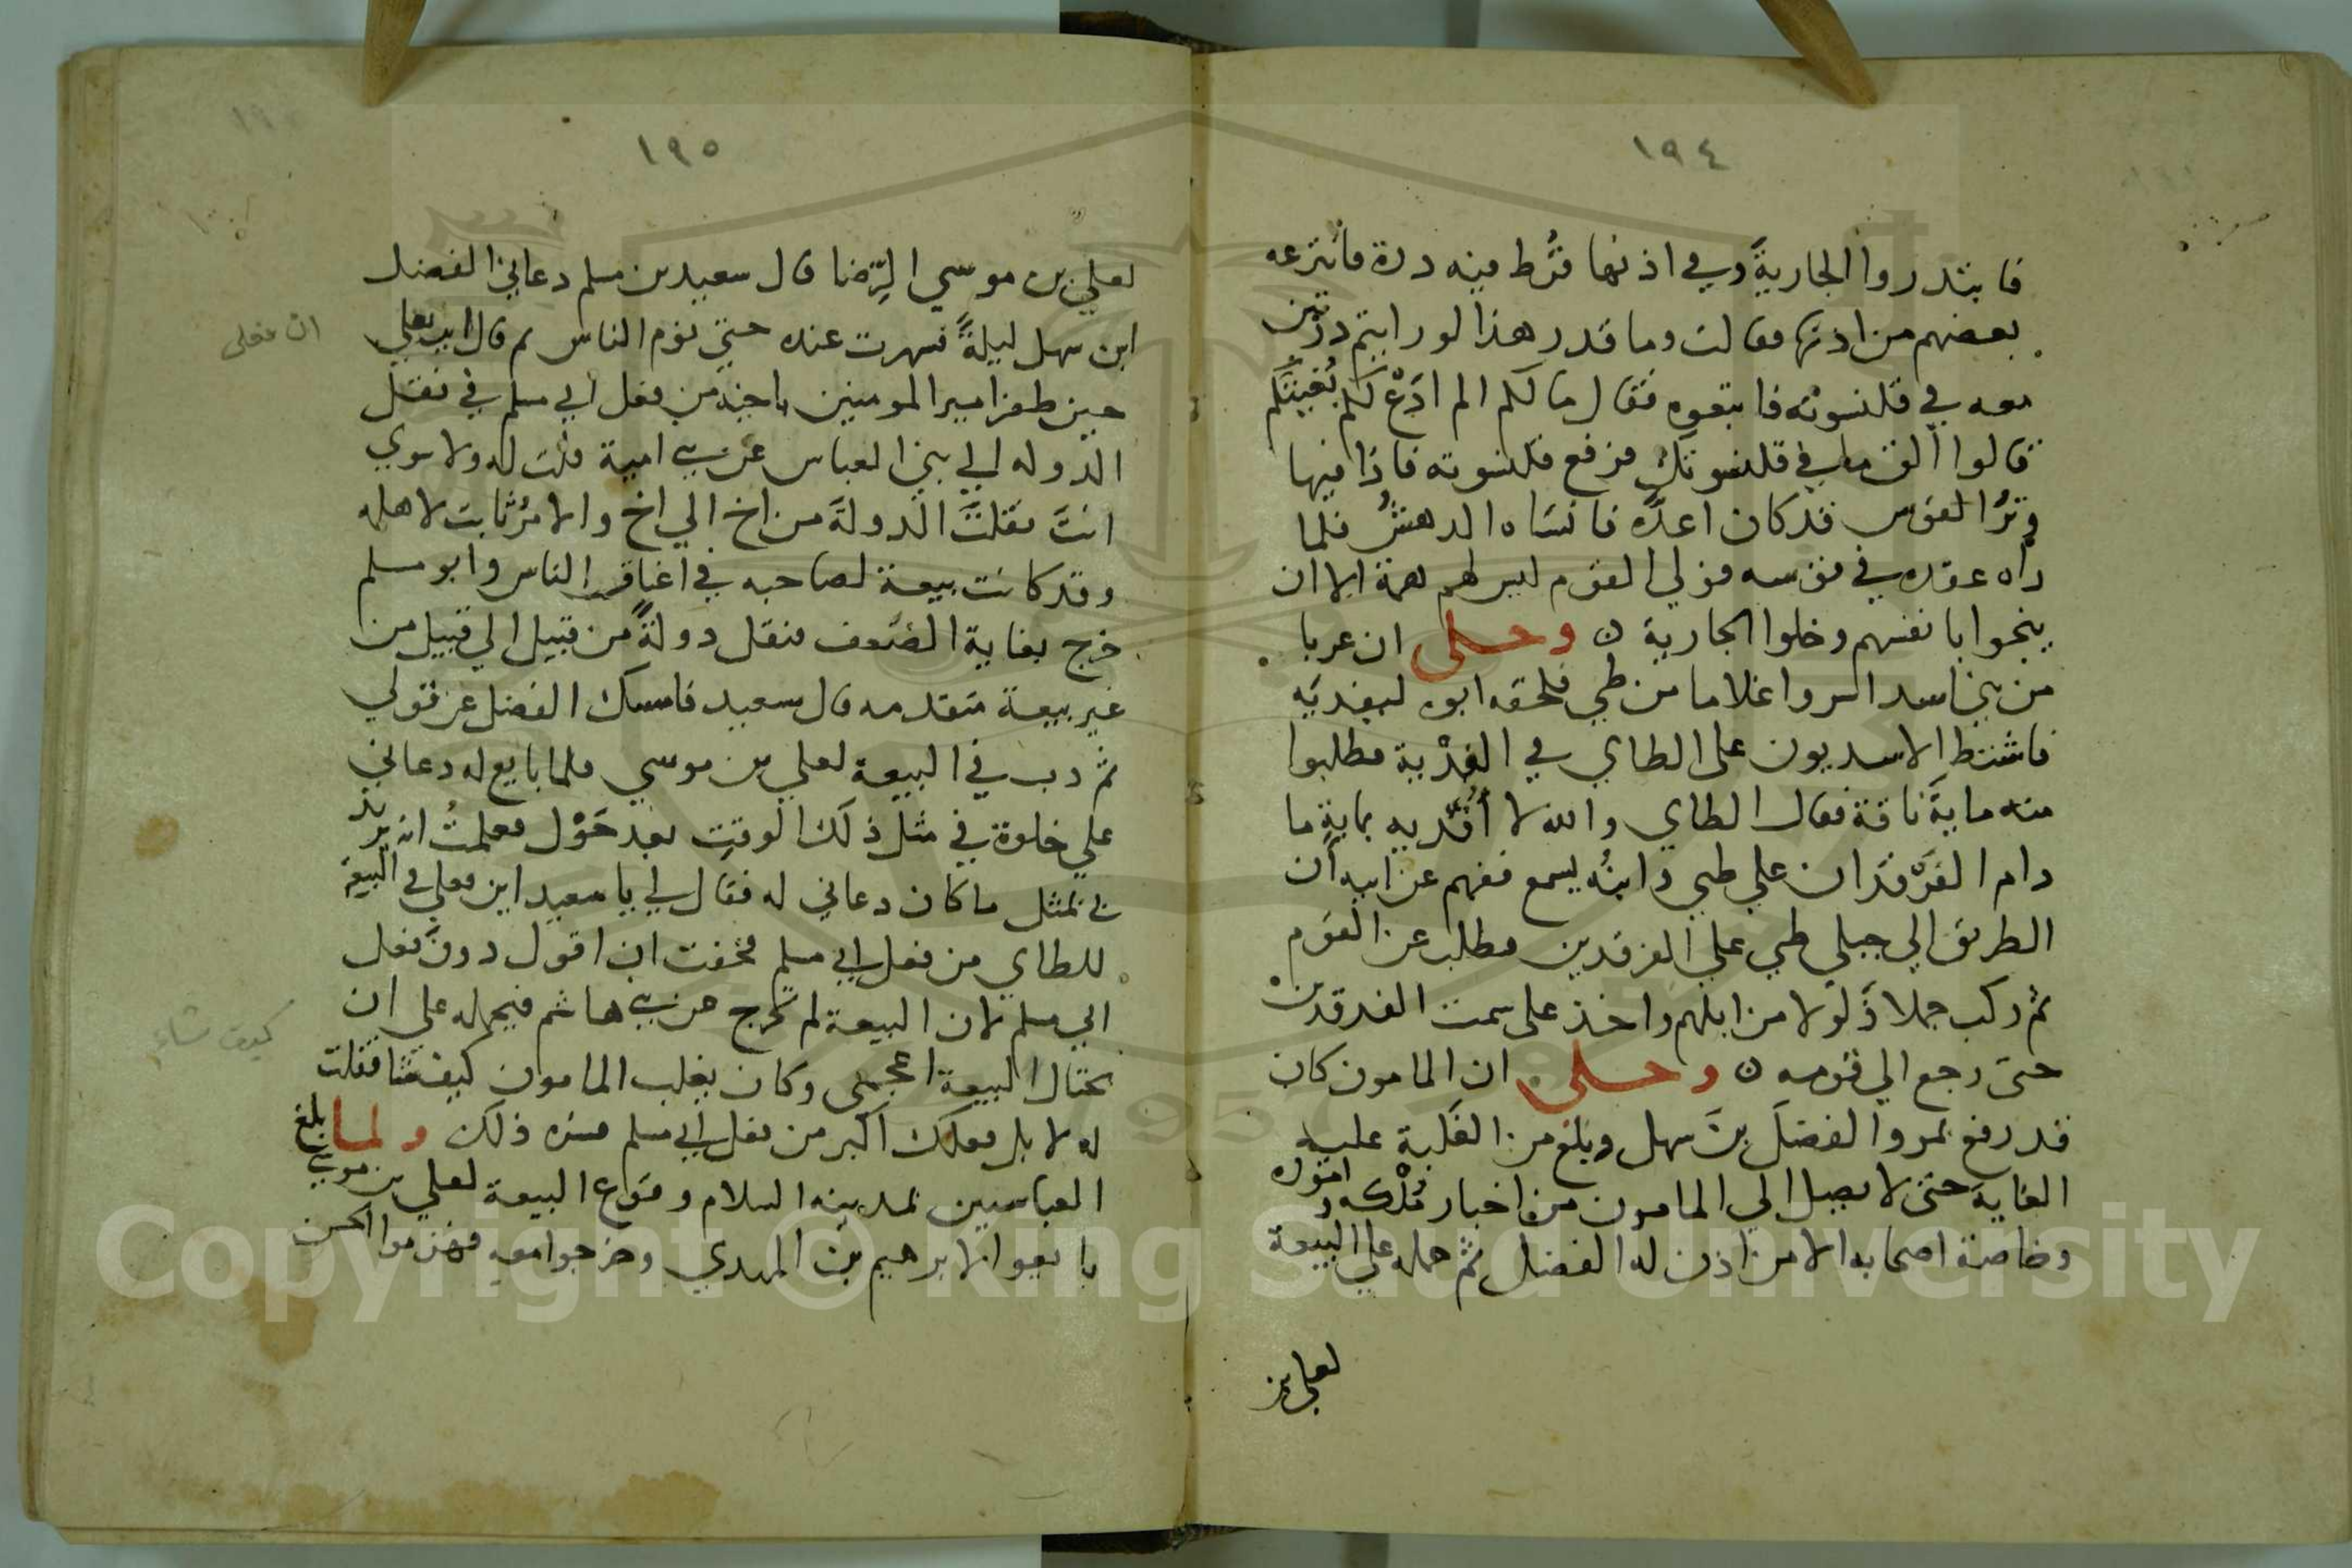 ١٩٤
فابتدروا الجاريةَ وفي اذنها قُرط فيه درة فانتزعه
بعضهم من اذنها فقالت وما قدر هذا لو رايتم درّتين
معه في قلنسوته فاتبعوه فقال ما لكم الم ادَعْ لكم بُغيتَكم
قالوا الق ما في قلنسوتك فرفع قلنسوته فاذا فيها
وترُ القوس قد كان اعدّه فانسَاه الدهشُ فلما
راه عقده في قوسه فولي القوم ليس لهم همة الا ان
ينجوا بانفسهم وخلوا الجارية ن وحكى ان عربا
من بني اسد اسروا غلاما من طي فلحقه ابوه ليفديَه
فاشتط الاسديون على الطاي في الفدْية فطلبوا
منه مايةَ ناقة فقال الطاي والله لا أفديه بماية ما
دام الفرْقدان علي طي وابنُه يسمع ففهم عن ابيه أن
الطريق الي جبلي طي علي الفرقدين فطلب عن القوم
ثم ركب جملا ذَلولا من ابلهم واخذ على سمت الفرقدين
حتى رجع الي قومه ن وحكى ان المامون كان
قد رفع بمرو الفضلَ بنَ سهل وبلغ من الغلبة عليه
الغاية حتى لا يصل الي المامون من اخبار مُلْكه وامُوره
وخاصة اصحابه الا من اذن له الفضل ثم حمله علي البيعة
لعلي بن
١٩٥
لعلي بن موسي الرِّضا قال سعيد بن مسلم دعاني الفضل
ابن سهل ليلةً فسهرت عنده حتي نوم الناس ثم قال اين فعلي
ان فعلى
حين ظفر امير المومنين باخيه من فعل ابي مسلم في نقل
الدوله الي بني العباس عن بني امية قلت له ولا سوي
انتَ نقلتَ الدولةَ من اخ الي اخ والامرُ ثابت لاهله
وقد كانت بيعة لصاحبه في اعناق الناس وابو مسلم
خرج بغاية الضعف فنقل دولةً من قبيل الي قبيل من
غير بيعة متقدمه قال سعيد فامسك الفضل عن قولي
ثم دب في البيعة لعلي بن موسي فلما بايع له دعاني
علي خلوة في مثل ذلك الوقت بعد حَوْل فعلمتُ انه يريد
في مثل ما كان دعاني له فقال لي يا سعيد اين فعلي في البيعة
للطاي من فعل ابي مسلم فخفت ان اقول دونَ فعل
ابي مسلم لان البيعة لم تخرج عن بني هاشم فيحمله علي ان
يحتال البيعة اعجمي وكان يغلب المامون كيف شا فقلت
كيف شاء
له لا بل فعلك اكبر من فعل ابي مسلم فسره ذلك ولما بلغ
العباسيين بمدينه السلام وقوع البيعة لعلي بن موسي
بايعوا لابرهيم بن المهدي وخرجوا معه فهزموا الحسن
Copyright © King Saud University
1957